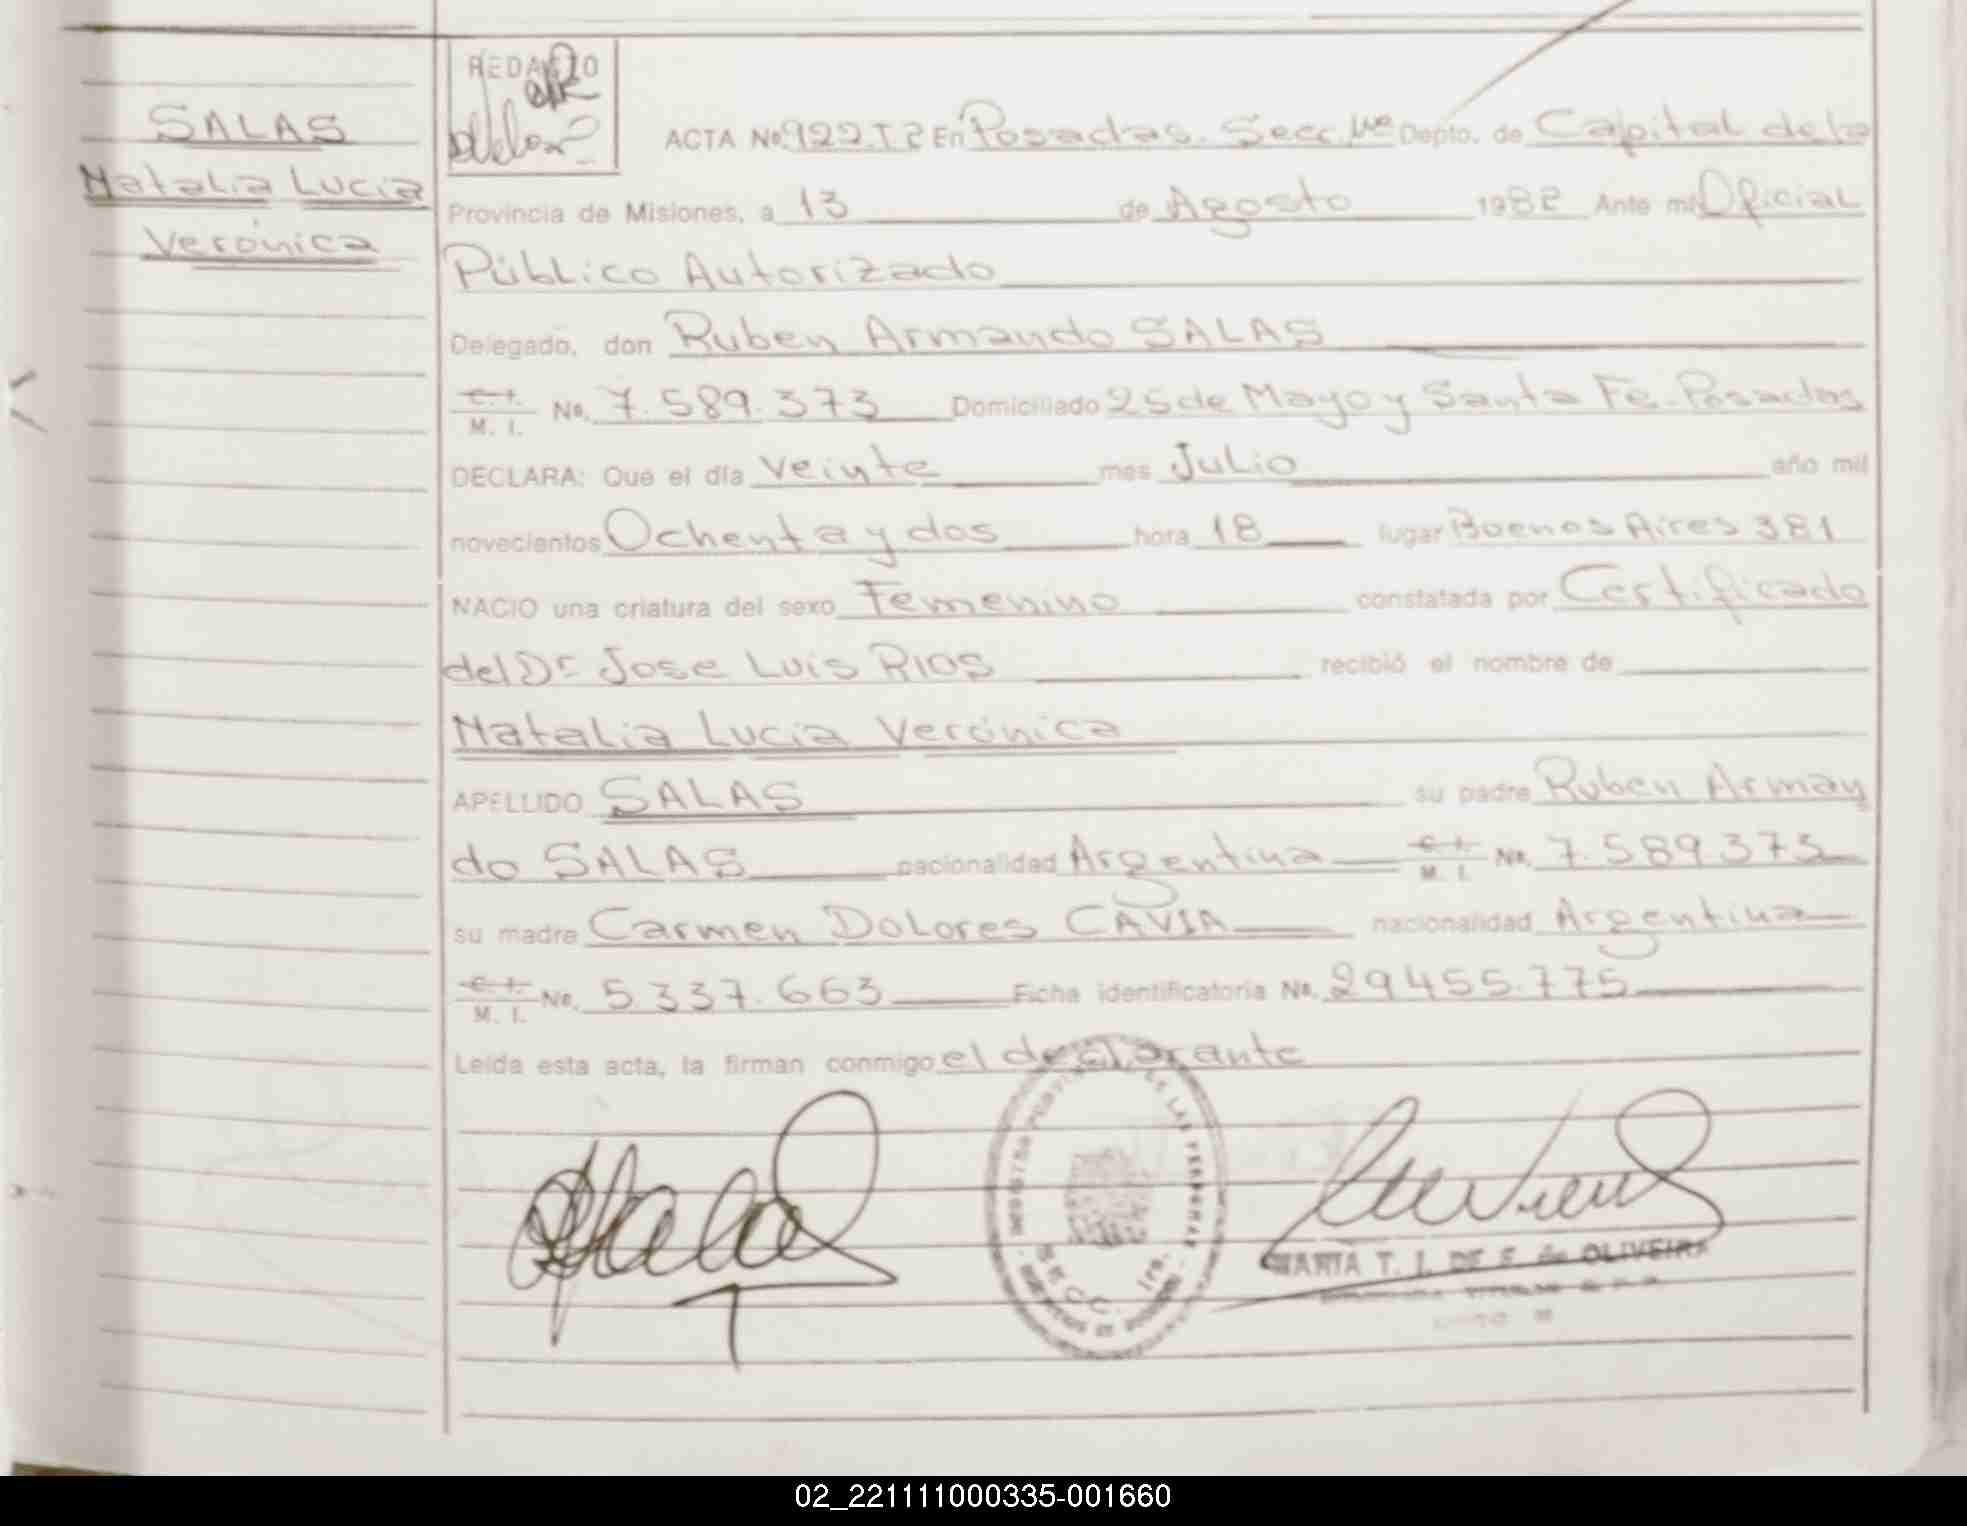 SALAS
Natalia Lucia
Verónica
REDACTO
ACTA No. 922 T2 En Posadas. Secc. Depto. de Capital de la
Provincia de Misiones, a 13 de Agosto 1982 Ante mi Oficial
Público Autorizado
Delegado, don Ruben Armando SALAS
C. I. M. I. No. 7.589.373 Domiciliado 25 de Mayo y Santa Fe-Posadas
DECLARA: Que el día veinte mes Julio año mil
novecientos Ochenta y dos hora 18 lugar Buenos Aires 381
NACIO una criatura del sexo Femenino constatada por Certificado
del Dr Jose Luis RIOS recibió el nombre de
Natalia Lucia Verónica
APELLIDO SALAS su padre Ruben Arman
do SALAS nacionalidad Argentina C. I. M. I. No. 7.589.373
su madre Carmen Dolores CAVIA nacionalidad Argentina
C. I. M. I. No. 5.337.663 Ficha identificatoria No. 29455.775
Leída esta acta, la firman conmigo el declarante
DE LAS PERSONAS
SECC. 1ra.
MARTA T. I. DE F. de OLIVEIRA
02_221111000335-001660